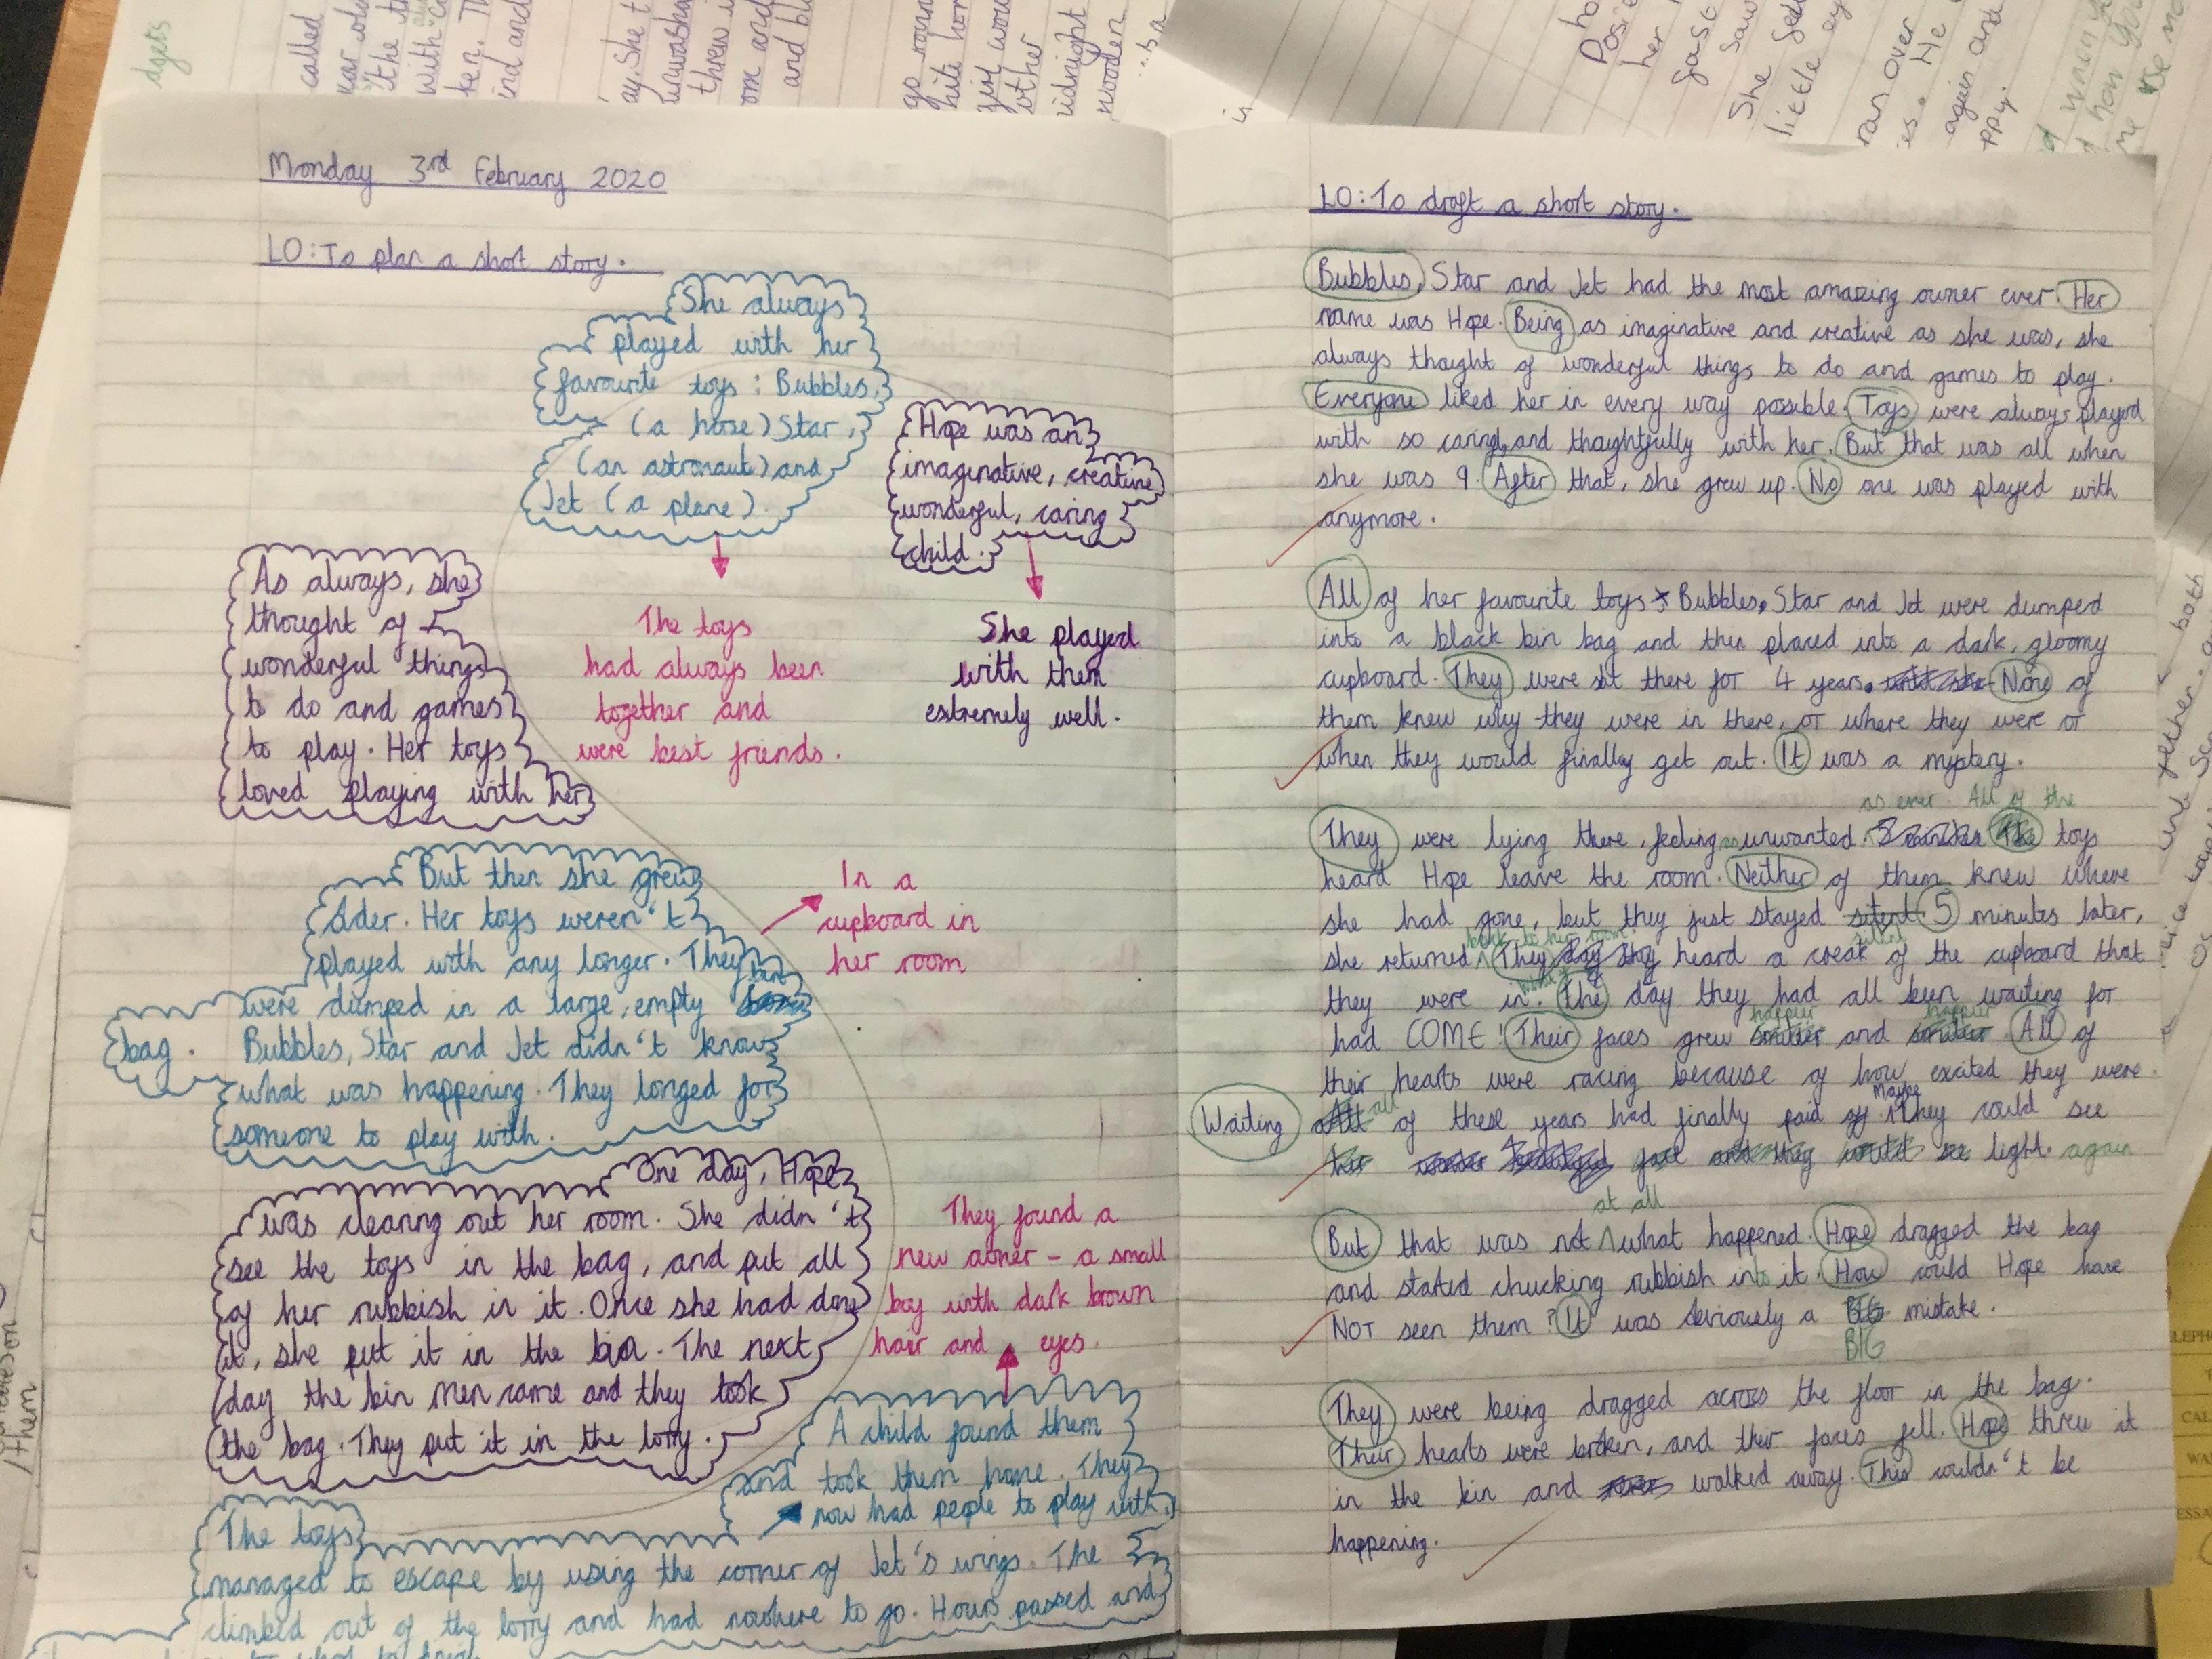 Monday 3rd February 2020
LO: To plan a short story.
She always
played with her
favourite toys: Bubbles,
(a horse) Star,
(an astronaut) and
Jet (a plane).
Hope was an
imaginative, creative
wonderful, caring
child.
As always, she
thought of
wonderful things
to do and games
to play. Her toys
loved playing with her
The toys
had always been
together and
were best friends.
She played
with them
extremely well.
But then she grew
older. Her toys weren't
played with any longer. They
were dumped in a large, empty bin
bag. Bubbles, Star and Jet didn't know
what was happening. They longed for
someone to play with.
In a
cupboard in
her room
One day, Hope
was clearing out her room. She didn't
see the toys in the bag, and put all
of her rubbish in it. Once she had done
it, she put it in the bin. The next
day the bin men came and they took
the bag. They put it in the lorry.
They found a
new owner - a small
boy with dark brown
hair and eyes.
A child found them
and took them home. They
now had people to play with.
The toys
managed to escape by using the corner of Jet's wings. The
climbed out of the lorry and had nowhere to go. Hours passed and
LO: To draft a short story.
Bubbles, Star and Jet had the most amazing owner ever Her
name was Hope. Being as imaginative and creative as she was, she
always thought of wonderful things to do and games to play.
Everyone liked her in every way possible. Toys were always played
with so caring, and thoughtfully with her. But that was all when
she was 9. After that, she grew up. No one was played with
anymore.
All of her favourite toys; Bubbles, Star and Jet were dumped
into a black bin bag and then placed into a dark, gloomy
cupboard. They were sat there for 4 years. until she None of
them knew why they were in there, or where they were or
when they would finally get out. It was a mystery.
as ever. All of the
They were lying there, feeling as unwanted. 5 minutes The toys
heard Hope leave the room. Neither of them knew where
she had gone, but they just stayed silent. 5 minutes later,
silent
back to her room.
she returned. They day they heard a creak of the cupboard that
they were in. The day they had all been waiting for
happier happier
had COME! Their faces grew smilier and smilier All of
their hearts were racing because of how excited they were.
Maybe
Waiting all of these years had finally paid off. They could see
her face and they would see light. again
at all
But that was not what happened. Hope dragged the bag
and stated chucking rubbish into it. How could Hope have
NOT seen them? It was obviously a BIG mistake.
BIG
They were being dragged across the floor in the bag.
Their hearts were broken, and their faces fell. Hope threw it
in the bin and walked away. This couldn't be
happening.
called
with
go roun
other
midnight
wooden
her
She saw
little
ran over
He
again and
ppy.
them